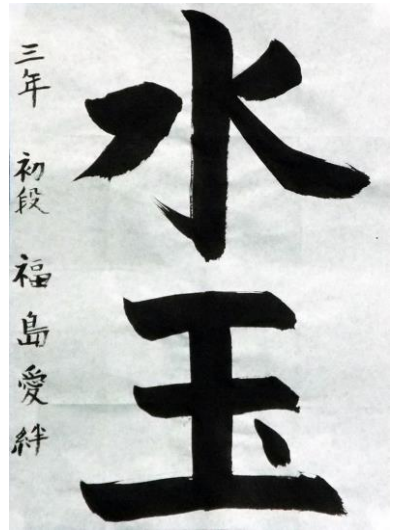 水玉
三年 初段 福島愛絆